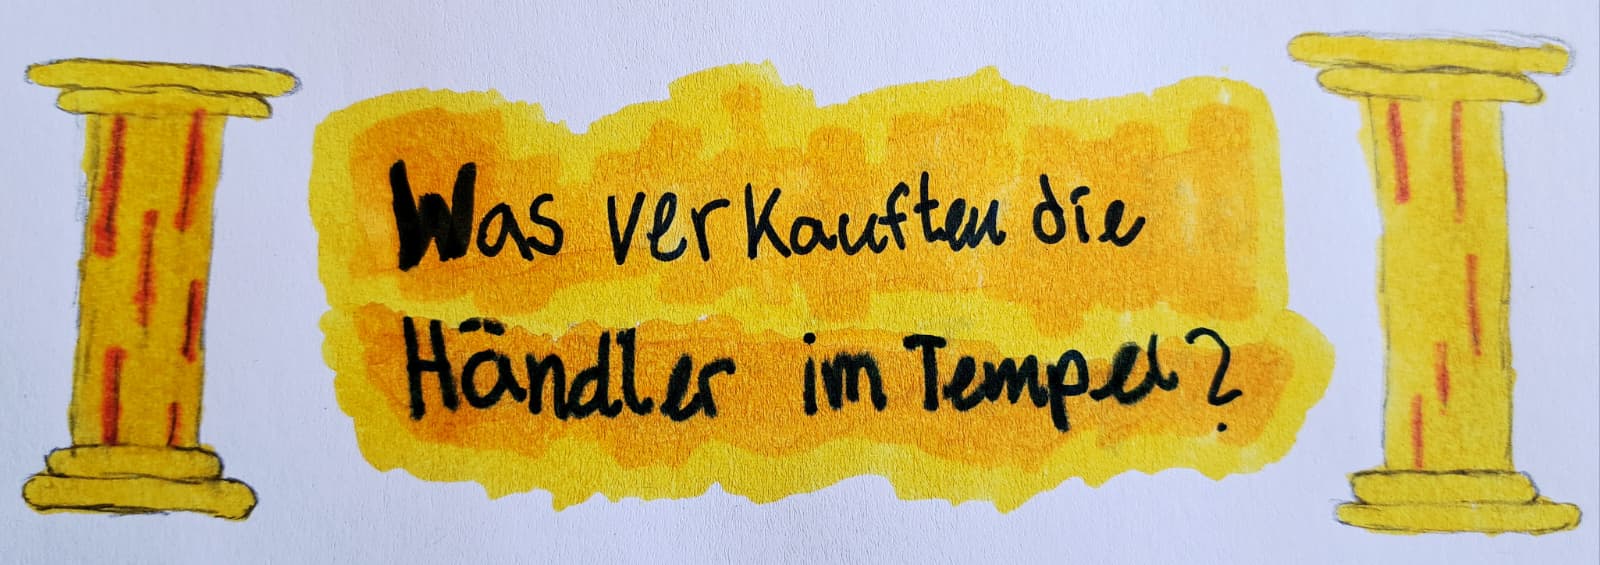 Was verkauften die
Händler im Tempel?